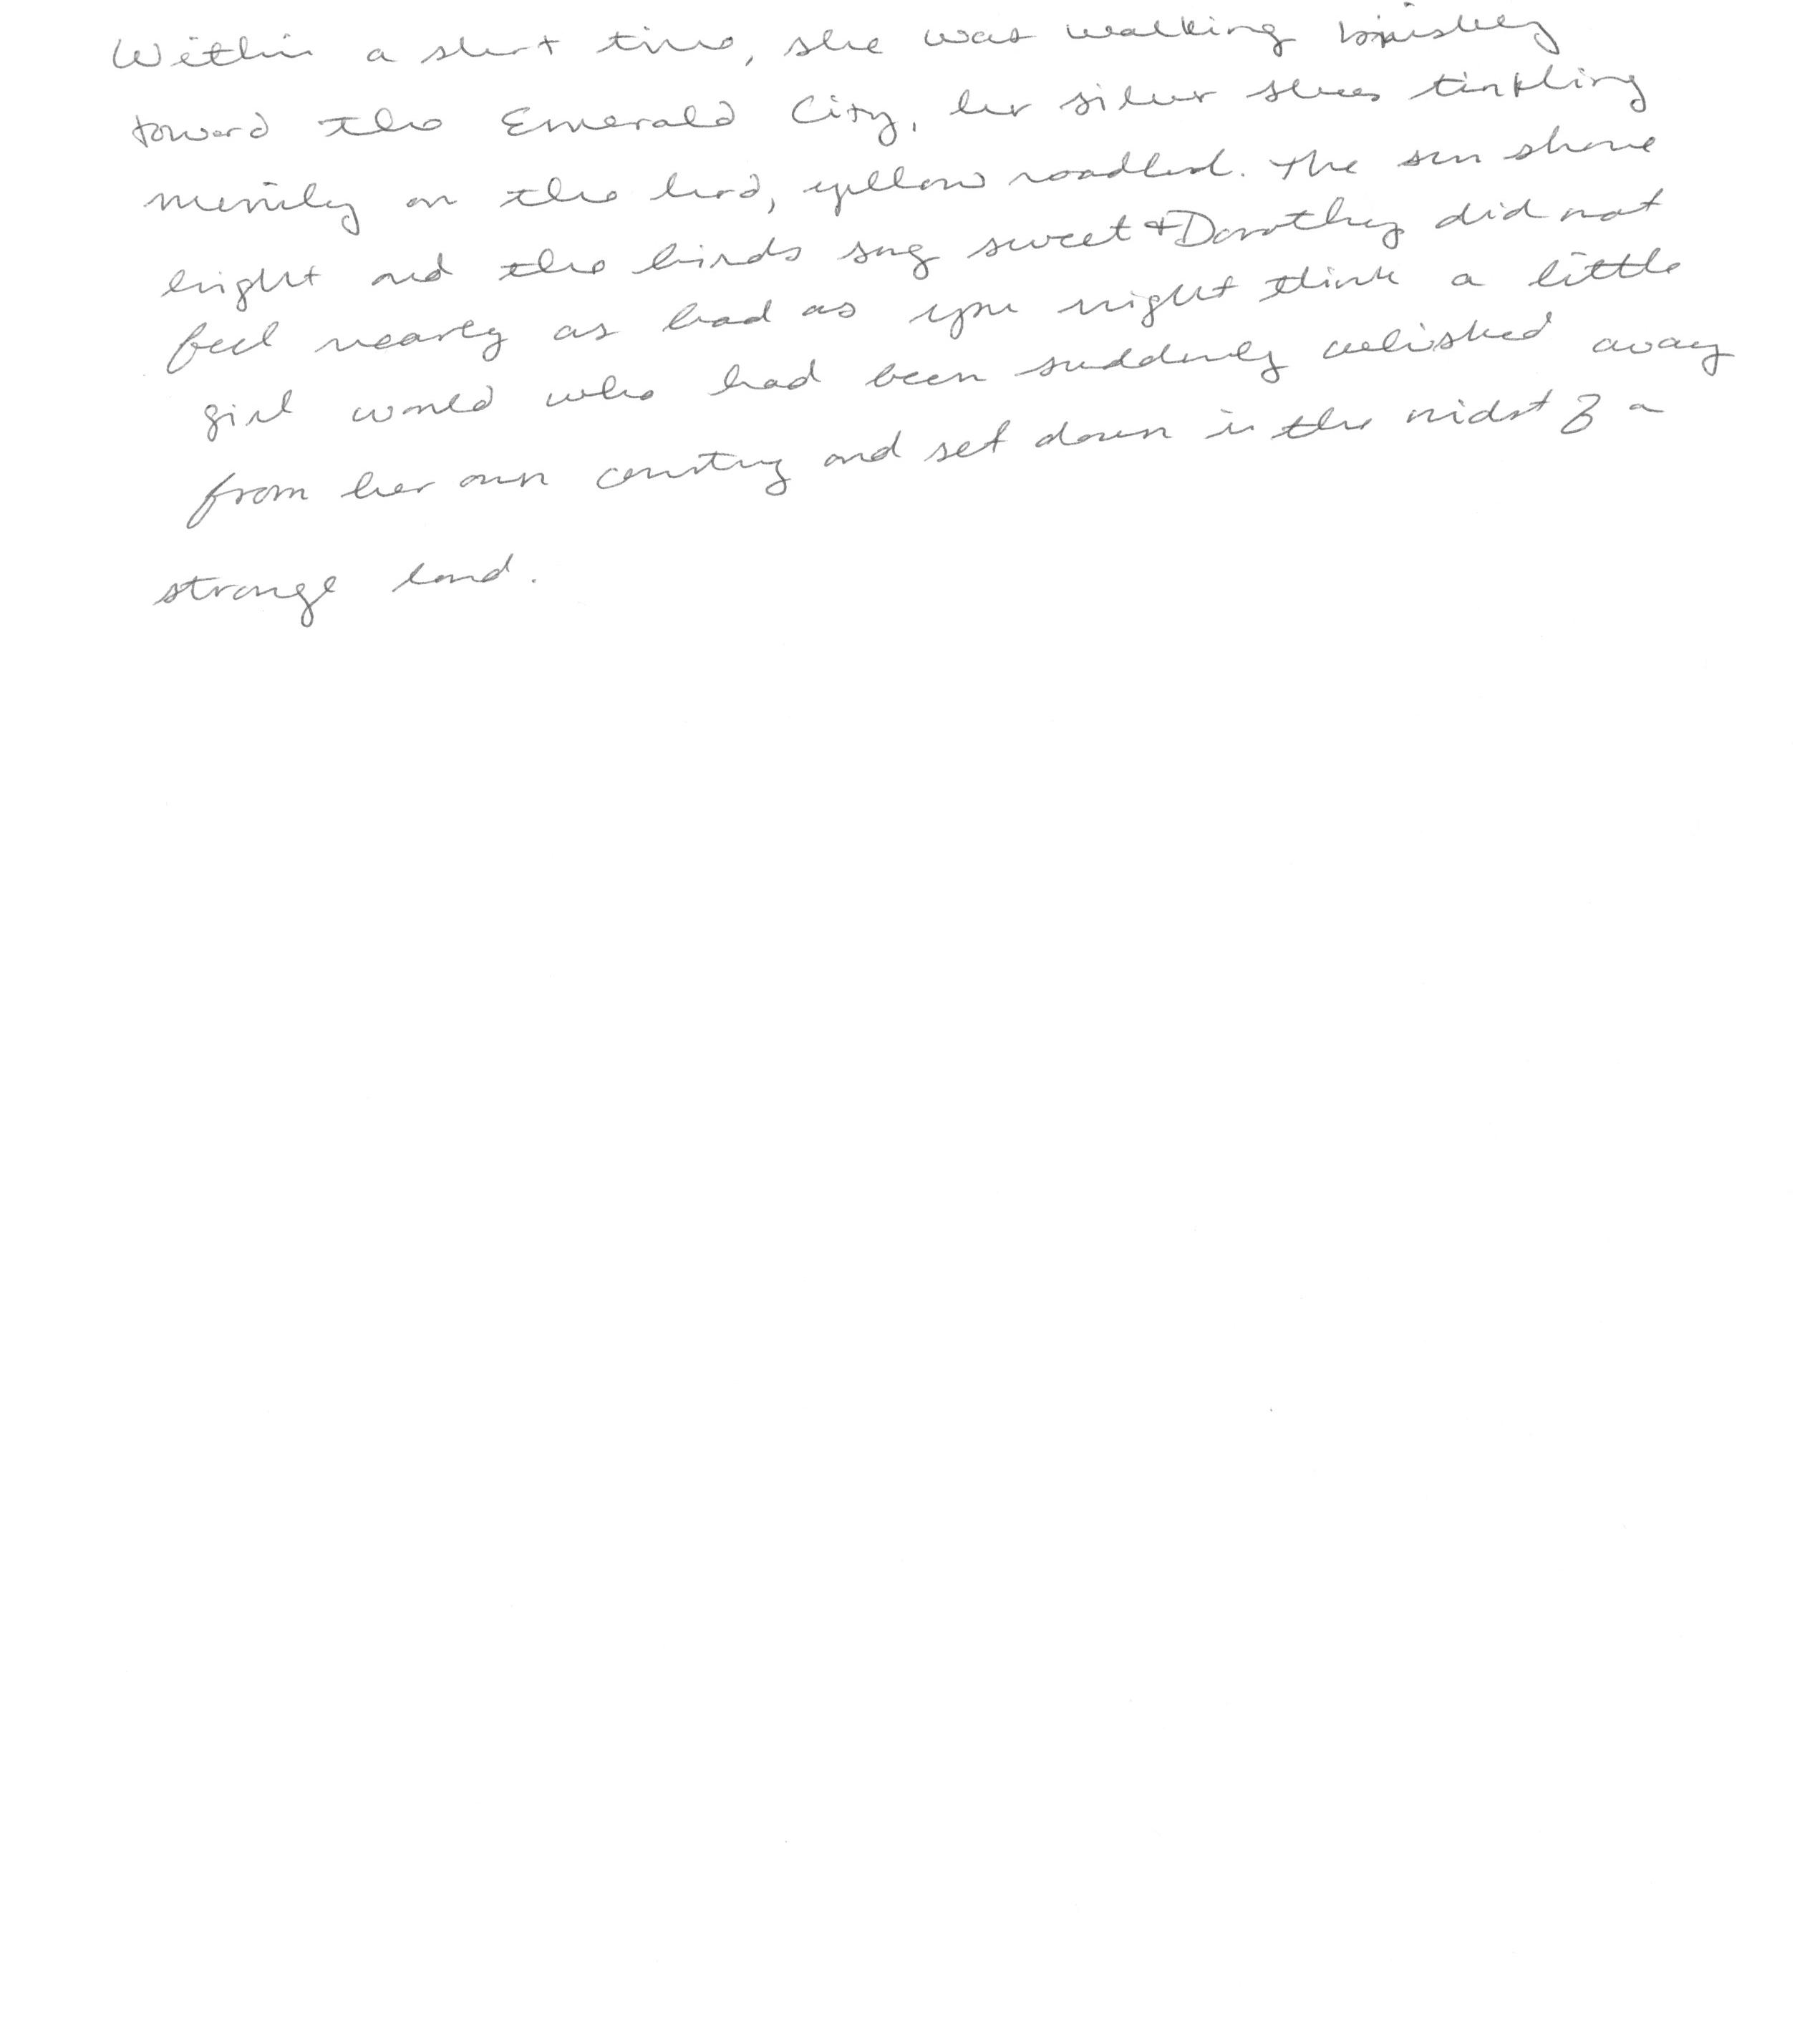 Within a short time, she was walking briskly
toward the Emerald City, her silver shoes tinkling
merrily on the hard, yellow roadbed. The sun shone
bright and the birds sang sweet & Dorothy did not
feel nearly as bad as you might think a little
girl would who had been suddenly whisked away
from her own country and set down in the midst of a
strange land.